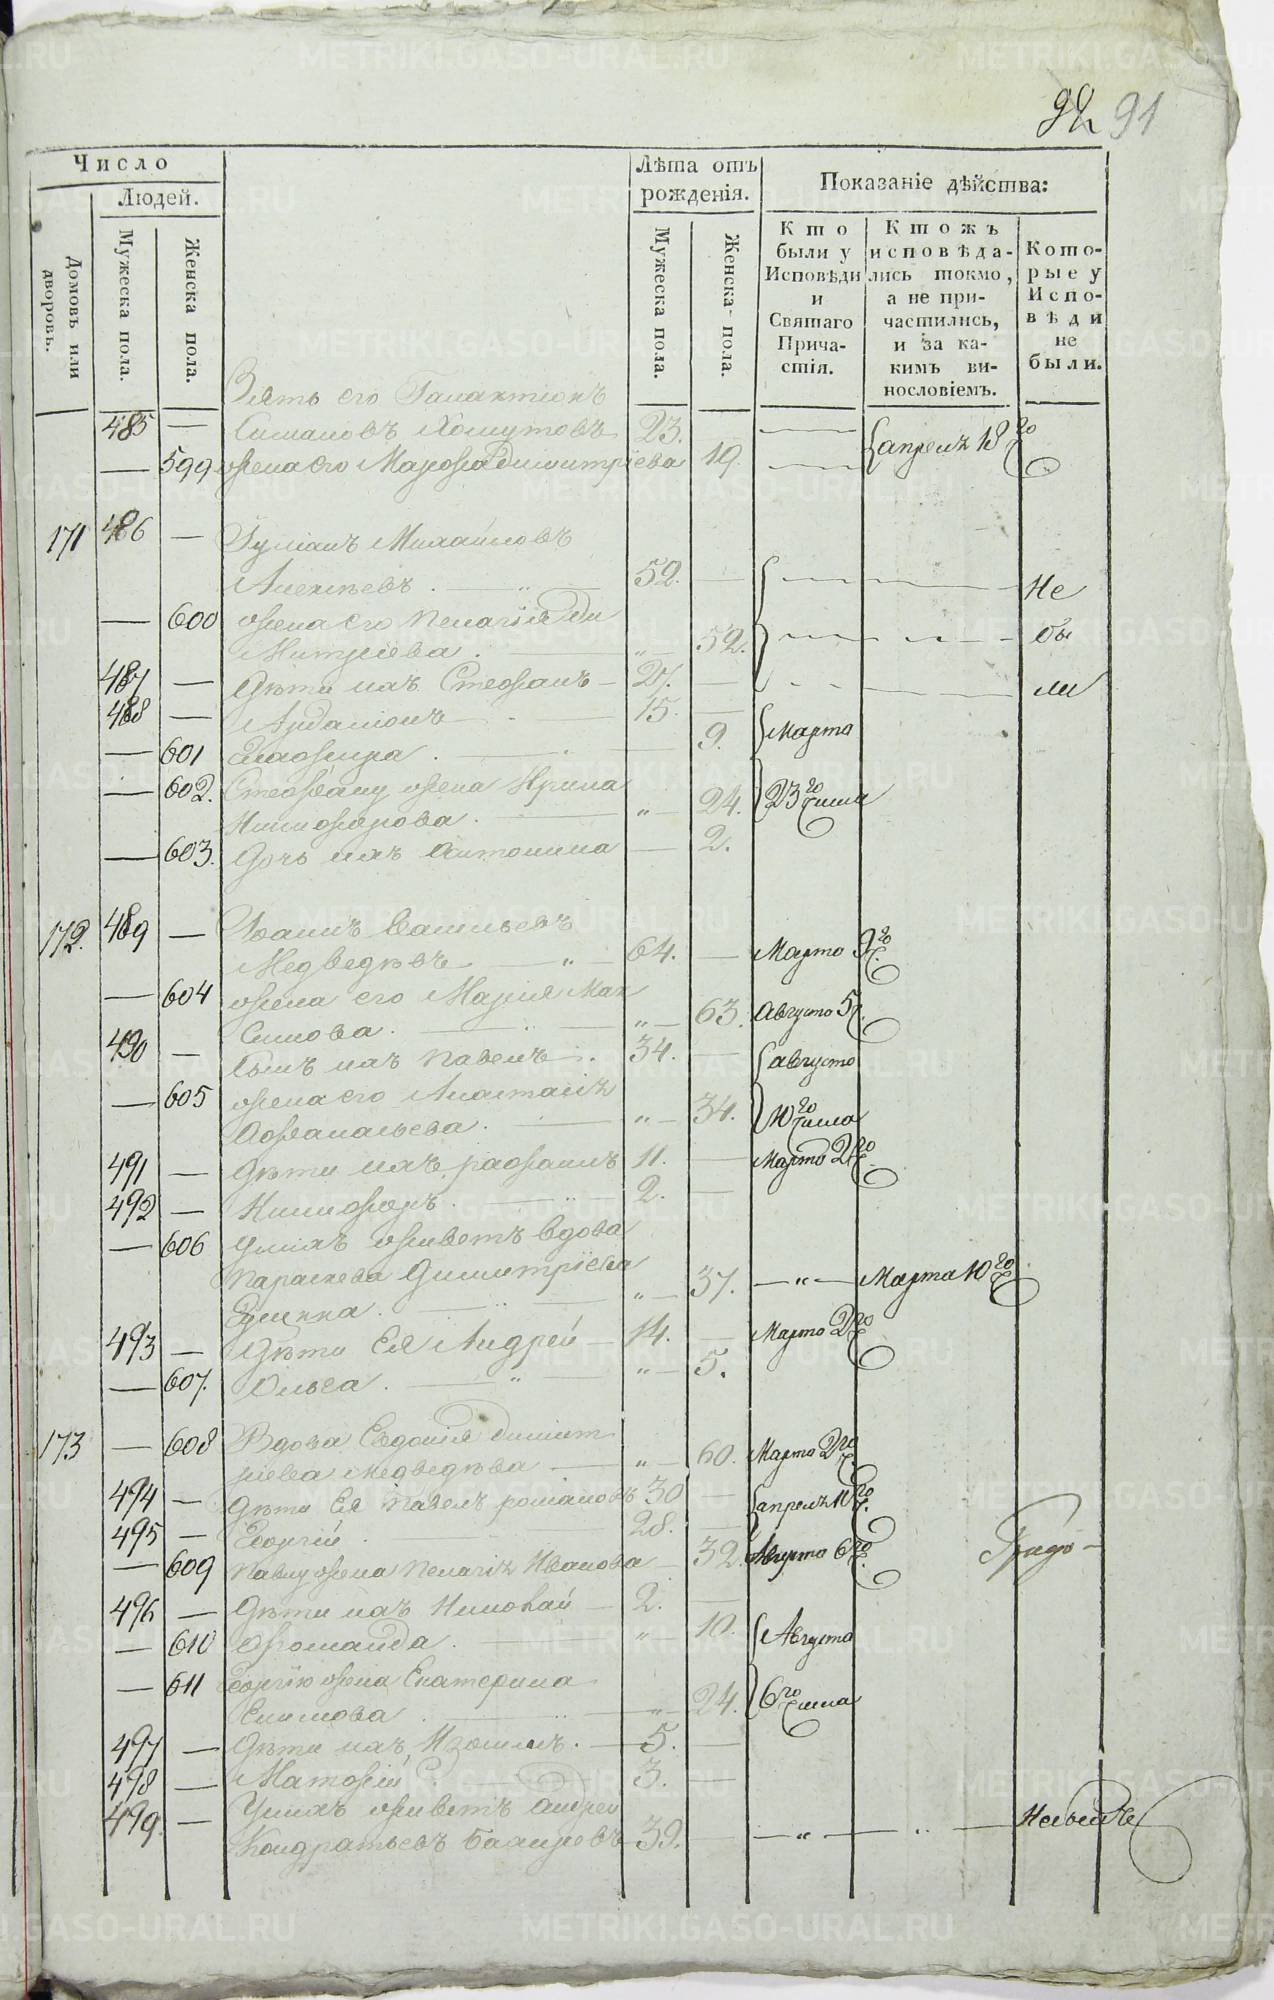 92 91
Число
Людей.
Домовъ или дворовъ.
Мужеска пола.
Женска пола.
Лѣта отъ рожденія.
Мужеска пола.
Женска пола.
Показаніе дѣйства:
Кто были у Исповѣди и Святаго Причастія.
Ктожъ исповѣдались токмо, а не причастились, и за какимъ винословіемъ.
Которые у Исповѣди не были.
Зять его Галактіонъ
485 — Симановъ Хомутовъ 23.
— 599 жена его Марѳа Димитріева 19. апреля 18го
171 486 — Іуліанъ Михайловъ
Алексѣевъ 52. — Не
— 600 жена его Пелагія Ди
митріева „ 52. бы
487 — Дѣти ихъ Стефанъ 27. — ли
488 — Ардаліонъ 15. — Марта
— 601 Глафира 9.
— 602. Стефану жена Ирина 23го числа
Никифорова „ 24.
— 603. Дочь ихъ Антонина — 2.
172. 489 — Іоаннъ Васильевъ
Медведѣвъ „ 64. — Марта 9го ч.
— 604 жена его Марія Мак
симова „ 63. Августа 5 ч.
490 — Сынъ ихъ Павелъ 34. — августа
— 605 жена его Анастасія
Аѳанасьева „ 34. 10го числа
491 — Дѣти ихъ Рафаилъ 11. — Марта 2го ч.
492 — Никифоръ „ 2. —
— 606 У нихъ живетъ вдова
Параскева Димитріева „ 37. — „ — Марта 10го ч
493 — Дѣти Ея Андрей 14. — Марта 2го ч
— 607. Ольга „ „ 5.
173 — 608 Вдова Евдокія Димит
ріева Медведѣва „ 60. Марта 2го ч
494 — Дѣти Ея Павелъ Романовъ 30 — апреля 10го ч.
495 — Георгій 28. —
— 609 Павлу жена Пелагія Иванова 32. Августа 6го ч.
496 — Дѣти ихъ Николай 2. —
— 610 Фотоманда „ 10. Августа
— 611 Георгію жена Екатерина
Екимова „ 24. 6го числа
497 — Дѣти ихъ Изосимъ 5. —
498 — Матфій 3. —
499. — У нихъ живетъ Андрей
Кондратьевъ 39. — „ — „ — Небылъ